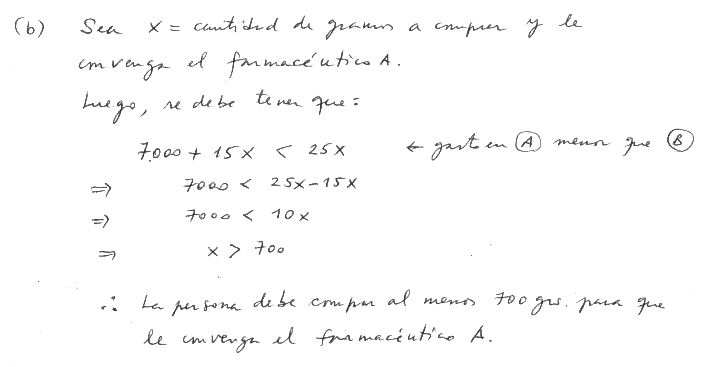 (b) Sea x = cantidad de gramos a comprar y le
convenga el farmacéutico A.
Luego, se debe tener que:
7.000 + 15x < 25x ← gasto en Ⓐ menor que Ⓑ
⇒ 7000 < 25x-15x
⇒ 7000 < 10x
⇒ x > 700
∴ La persona debe comprar al menos 700 grs. para que
le convenga el farmacéutico A.